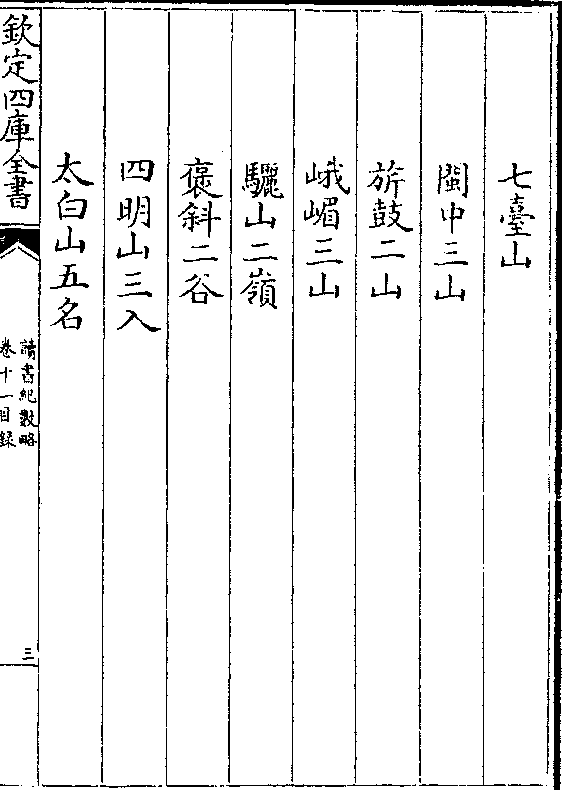 七臺山
閩中三山
旂鼓二山
峨嵋三山
驪山二嶺
褒斜二谷
四明山三入
太白山五名
欽定四庫全書
讀書紀數略
卷十一目録
三